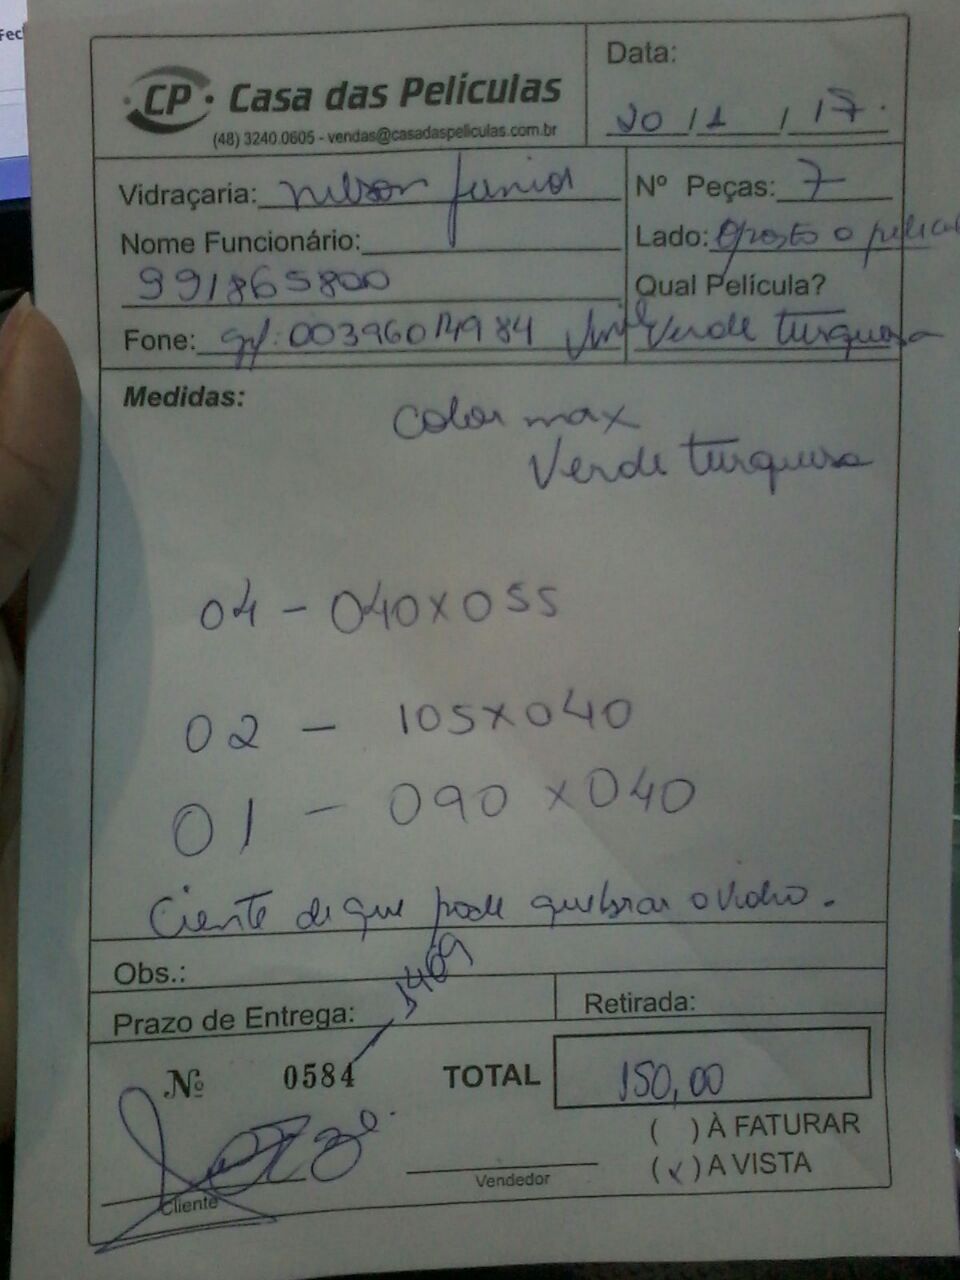 Fech
CP Casa das Películas
(48) 3240.0605 - vendas@casadaspeliculas.com.br
Data:
20 / 1 / 17.
Vidraçaria: Nilson Junior
Nº Peças: 7
Nome Funcionário:
Lado: Oposto o pelicul
991865800
Qual Película?
Fone: cpf: 00396014984
Verde turquesa
Medidas:
Color max
Verde turquesa
04 - 040x055
02 - 105x040
01 - 090x040
Ciente de que pode quebrar o vidro.
Obs.:
Prazo de Entrega:
1469
Retirada:
Nº 0584
TOTAL 150,00
( ) À FATURAR
(✓) A VISTA
Cliente
Vendedor